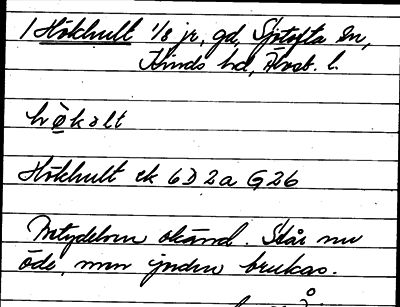 1 Hökhult 1/8 jr, gd, Sjötofta sn,
Kinds hd, Älvsb. l.
hö̀kølt
Hökhult ek 6D 2a G26
Betydelsen okänd. Står nu
öde, men jorden brukas.